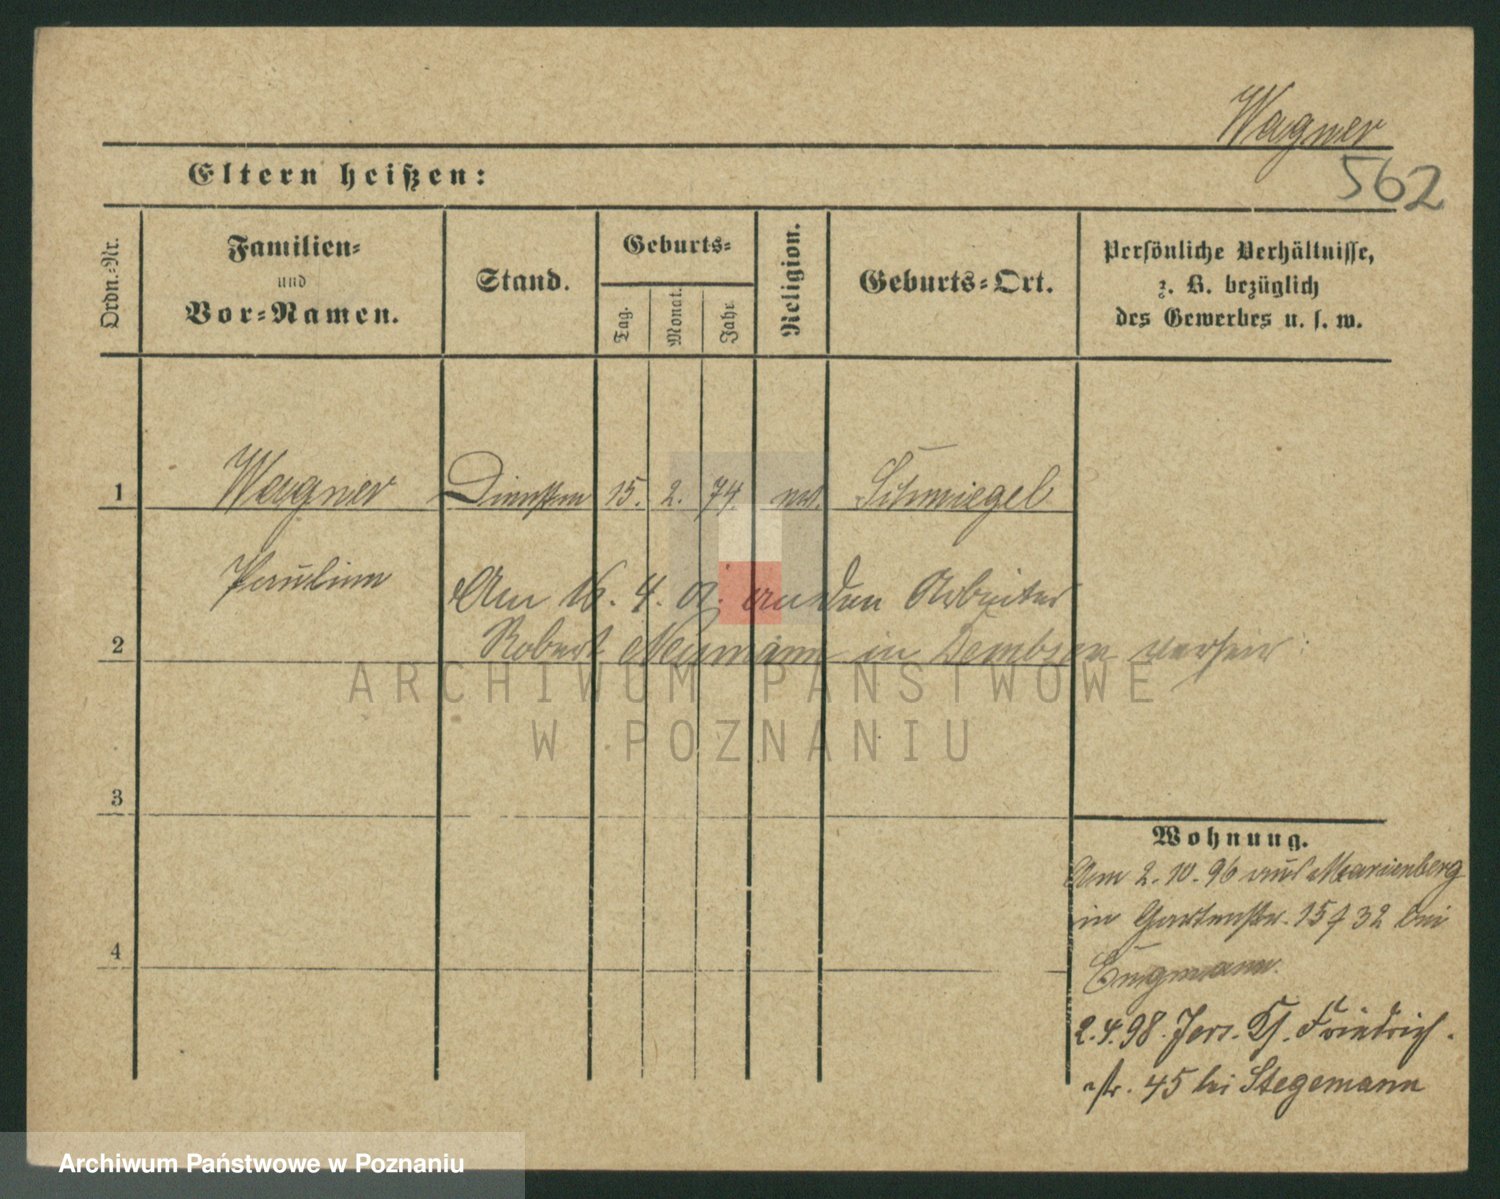 Wagner
562
Eltern heißen:
Ordn.-Nr.
Familien-
und
Vor-Namen.
Stand.
Geburts-
Tag.
Monat.
Jahr.
Religion.
Geburts-Ort.
Persönliche Verhältnisse,
z. B. bezüglich
des Gewerbes u. s. w.
1 Wagner 15. 2. 74. Schmiegel
Pauline Am 16. 4. an den Arbeiter
2 Robert Neumann in Dembsen
ARCHIWUM PAŃSTWOWE
W POZNANIU
3
Wohnung.
Am 2. 10. 96 aus Marienberg
in Gartenstr. 15 32 bei
4
2. 4. 98. Jers. Friedrich
str. 45 bei Stegemann
Archiwum Państwowe w Poznaniu